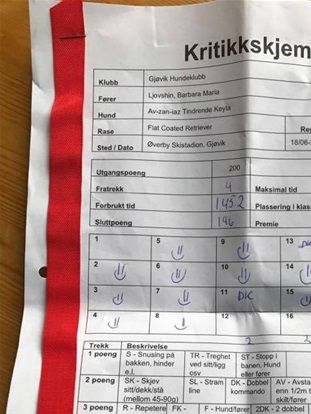 Kritikkskjem
Klubb Gjøvik Hundeklubb
Fører Ljovshin, Barbara Maria
Hund Av-zan-iaz Tindrende Keyla
Rase Flat Coated Retriever Re
Sted / Dato Øverby Skistadion, Gjøvik 18/06-
Utgangspoeng 200
Fratrekk 4 Maksimal tid
Forbrukt tid 145.2 Plassering i klas
Sluttpoeng 196 Premie
1 5 9 13
2 6 10 14
3 7 11 DK 15
4 8 12 16
2
Trekk Beskrivelse
1 poeng S - Snusing på bakken, hinder e.l. TR - Treghet ved sitt/ligg osv ST - Stopp i banen, Hund eller fører
2 poeng SK - Skjev sitt/dekk/stå (mellom 45-90g) SL - Stram line DK - Dobbel kommando AV - Avsta enn 1/2m t
3 poeng R - Repetere FK - F - Hund/fører 2DK - 2 dobbel